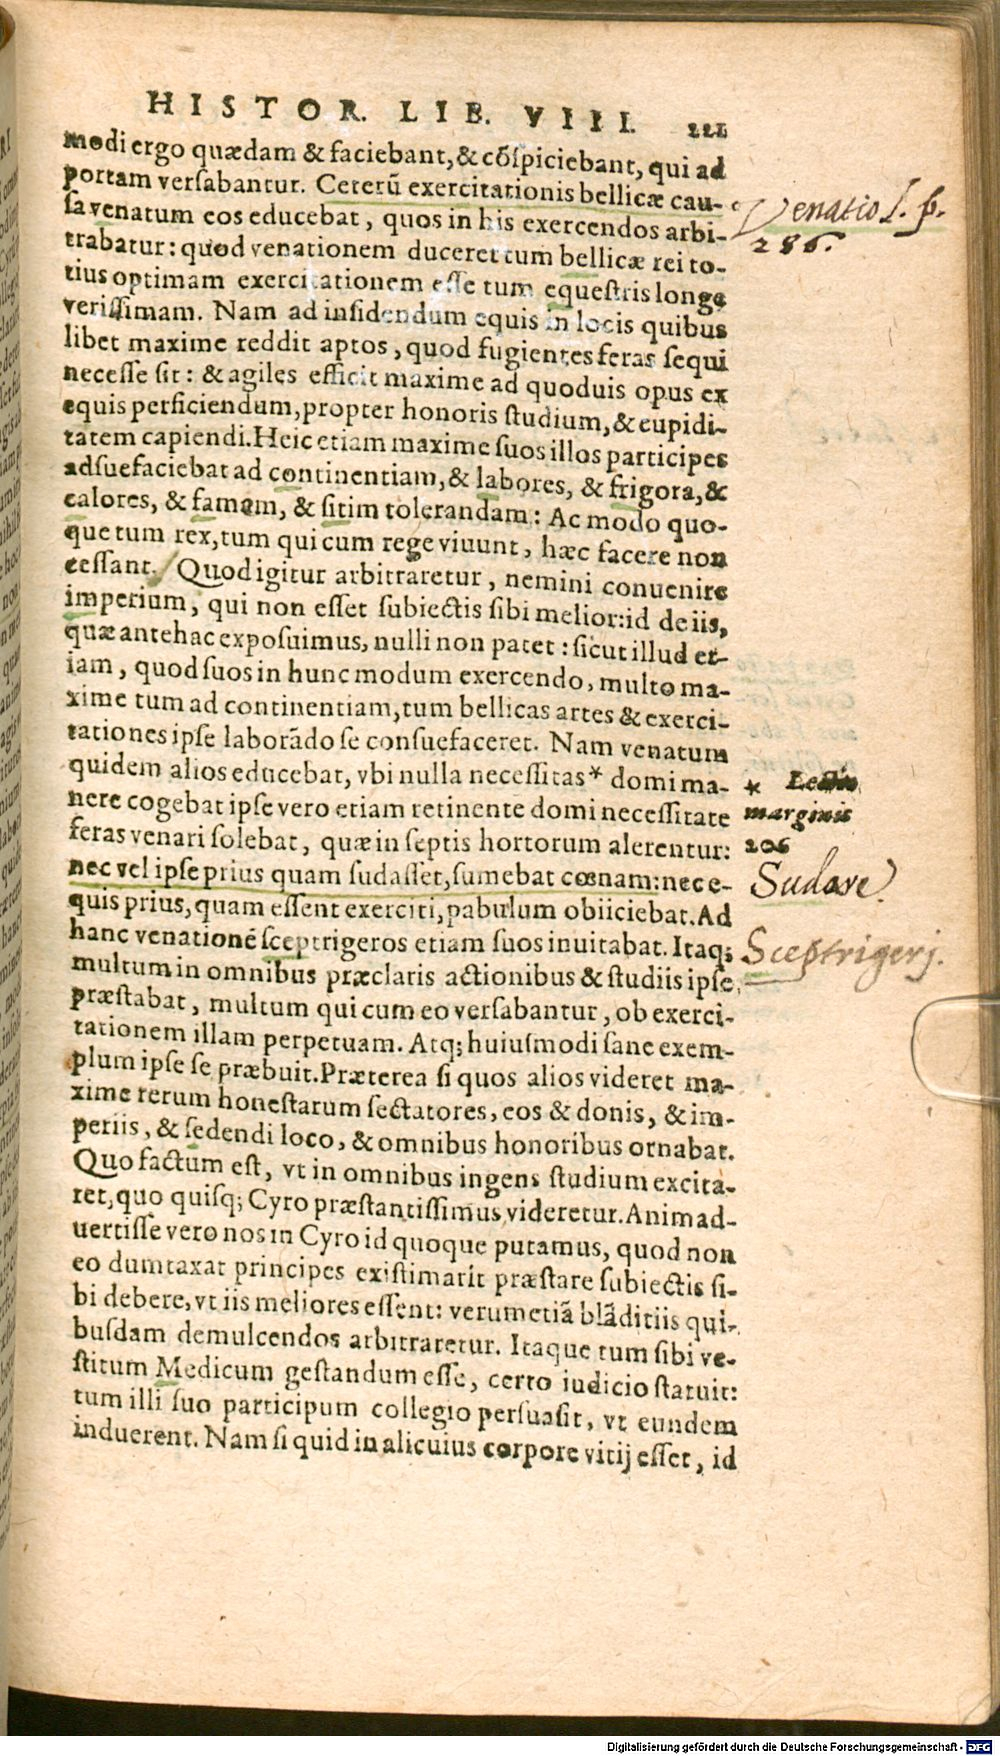 HISTOR. LIB. VIII. 221
modi ergo quædam & faciebant, & cõſpiciebant, qui ad
portam verſabantur. Ceterũ exercitationis bellicæ cau-
ſa venatum eos educebat, quos in his exercendos arbi-
Venatio I. p.
trabatur: quod venationem duceret tum bellicæ rei to-
286.
tius optimam exercitationem eſſe tum equeſtris longe
veriſſimam. Nam ad inſidendum equis in locis quibus
libet maxime reddit aptos, quod fugientes feras ſequi
neceſſe ſit: & agiles efficit maxime ad quoduis opus ex
equis perficiendum, propter honoris ſtudium, & cupidi-
tatem capiendi. Heic etiam maxime ſuos illos participes
adſuefaciebat ad continentiam, & labores, & frigora, &
calores, & famem, & ſitim tolerandam: Ac modo quo-
que tum rex, tum qui cum rege viuunt, hæc facere non
ceſſant. Quod igitur arbitraretur, nemini conuenire
imperium, qui non eſſet ſubiectis ſibi melior: id de iis,
quæ antehac expoſuimus, nulli non patet: ſicut illud et-
iam, quod ſuos in hunc modum exercendo, multo ma-
xime tum ad continentiam, tum bellicas artes & exerci-
tationes ipſe laborãdo ſe conſuefaceret. Nam venatum
quidem alios educebat, vbi nulla neceſſitas* domi ma-
* Lectio
nere cogebat ipſe vero etiam retinente domi neceſſitate
marginis
feras venari ſolebat, quæ in ſeptis hortorum alerentur:
206
nec vel ipſe prius quam ſudaſſet, ſumebat cœnam: nec e-
Sudare.
quis prius, quam eſſent exerciti, pabulum obiiciebat. Ad
hanc venationẽ ſceptrigeros etiam ſuos inuitabat. Itaq;
Sceptrigerj.
multum in omnibus præclaris actionibus & ſtudiis ipſe
præſtabat, multum qui cum eo verſabantur, ob exerci-
tationem illam perpetuam. Atq; huiuſmodi ſane exem-
plum ipſe ſe præbuit. Præterea ſi quos alios videret ma-
xime rerum honeſtarum ſectatores, eos & donis, & im-
periis, & ſedendi loco, & omnibus honoribus ornabat.
Quo factum eſt, vt in omnibus ingens ſtudium excita-
ret, quo quiſq; Cyro præſtantiſſimus videretur. Animad-
uertiſſe vero nos in Cyro id quoque putamus, quod non
eo dumtaxat principes exiſtimarit præſtare ſubiectis ſi-
bi debere, vt iis meliores eſſent: verumetiã blãditiis qui-
buſdam demulcendos arbitraretur. Itaque tum ſibi ve-
ſtitum Medicum geſtandum eſſe, certo iudicio ſtatuit:
tum illi ſuo participum collegio perſuaſit, vt eundem
induerent. Nam ſi quid in alicuius corpore vitij eſſet, id
Digitalisierung gefördert durch die Deutsche Forschungsgemeinschaft - DFG